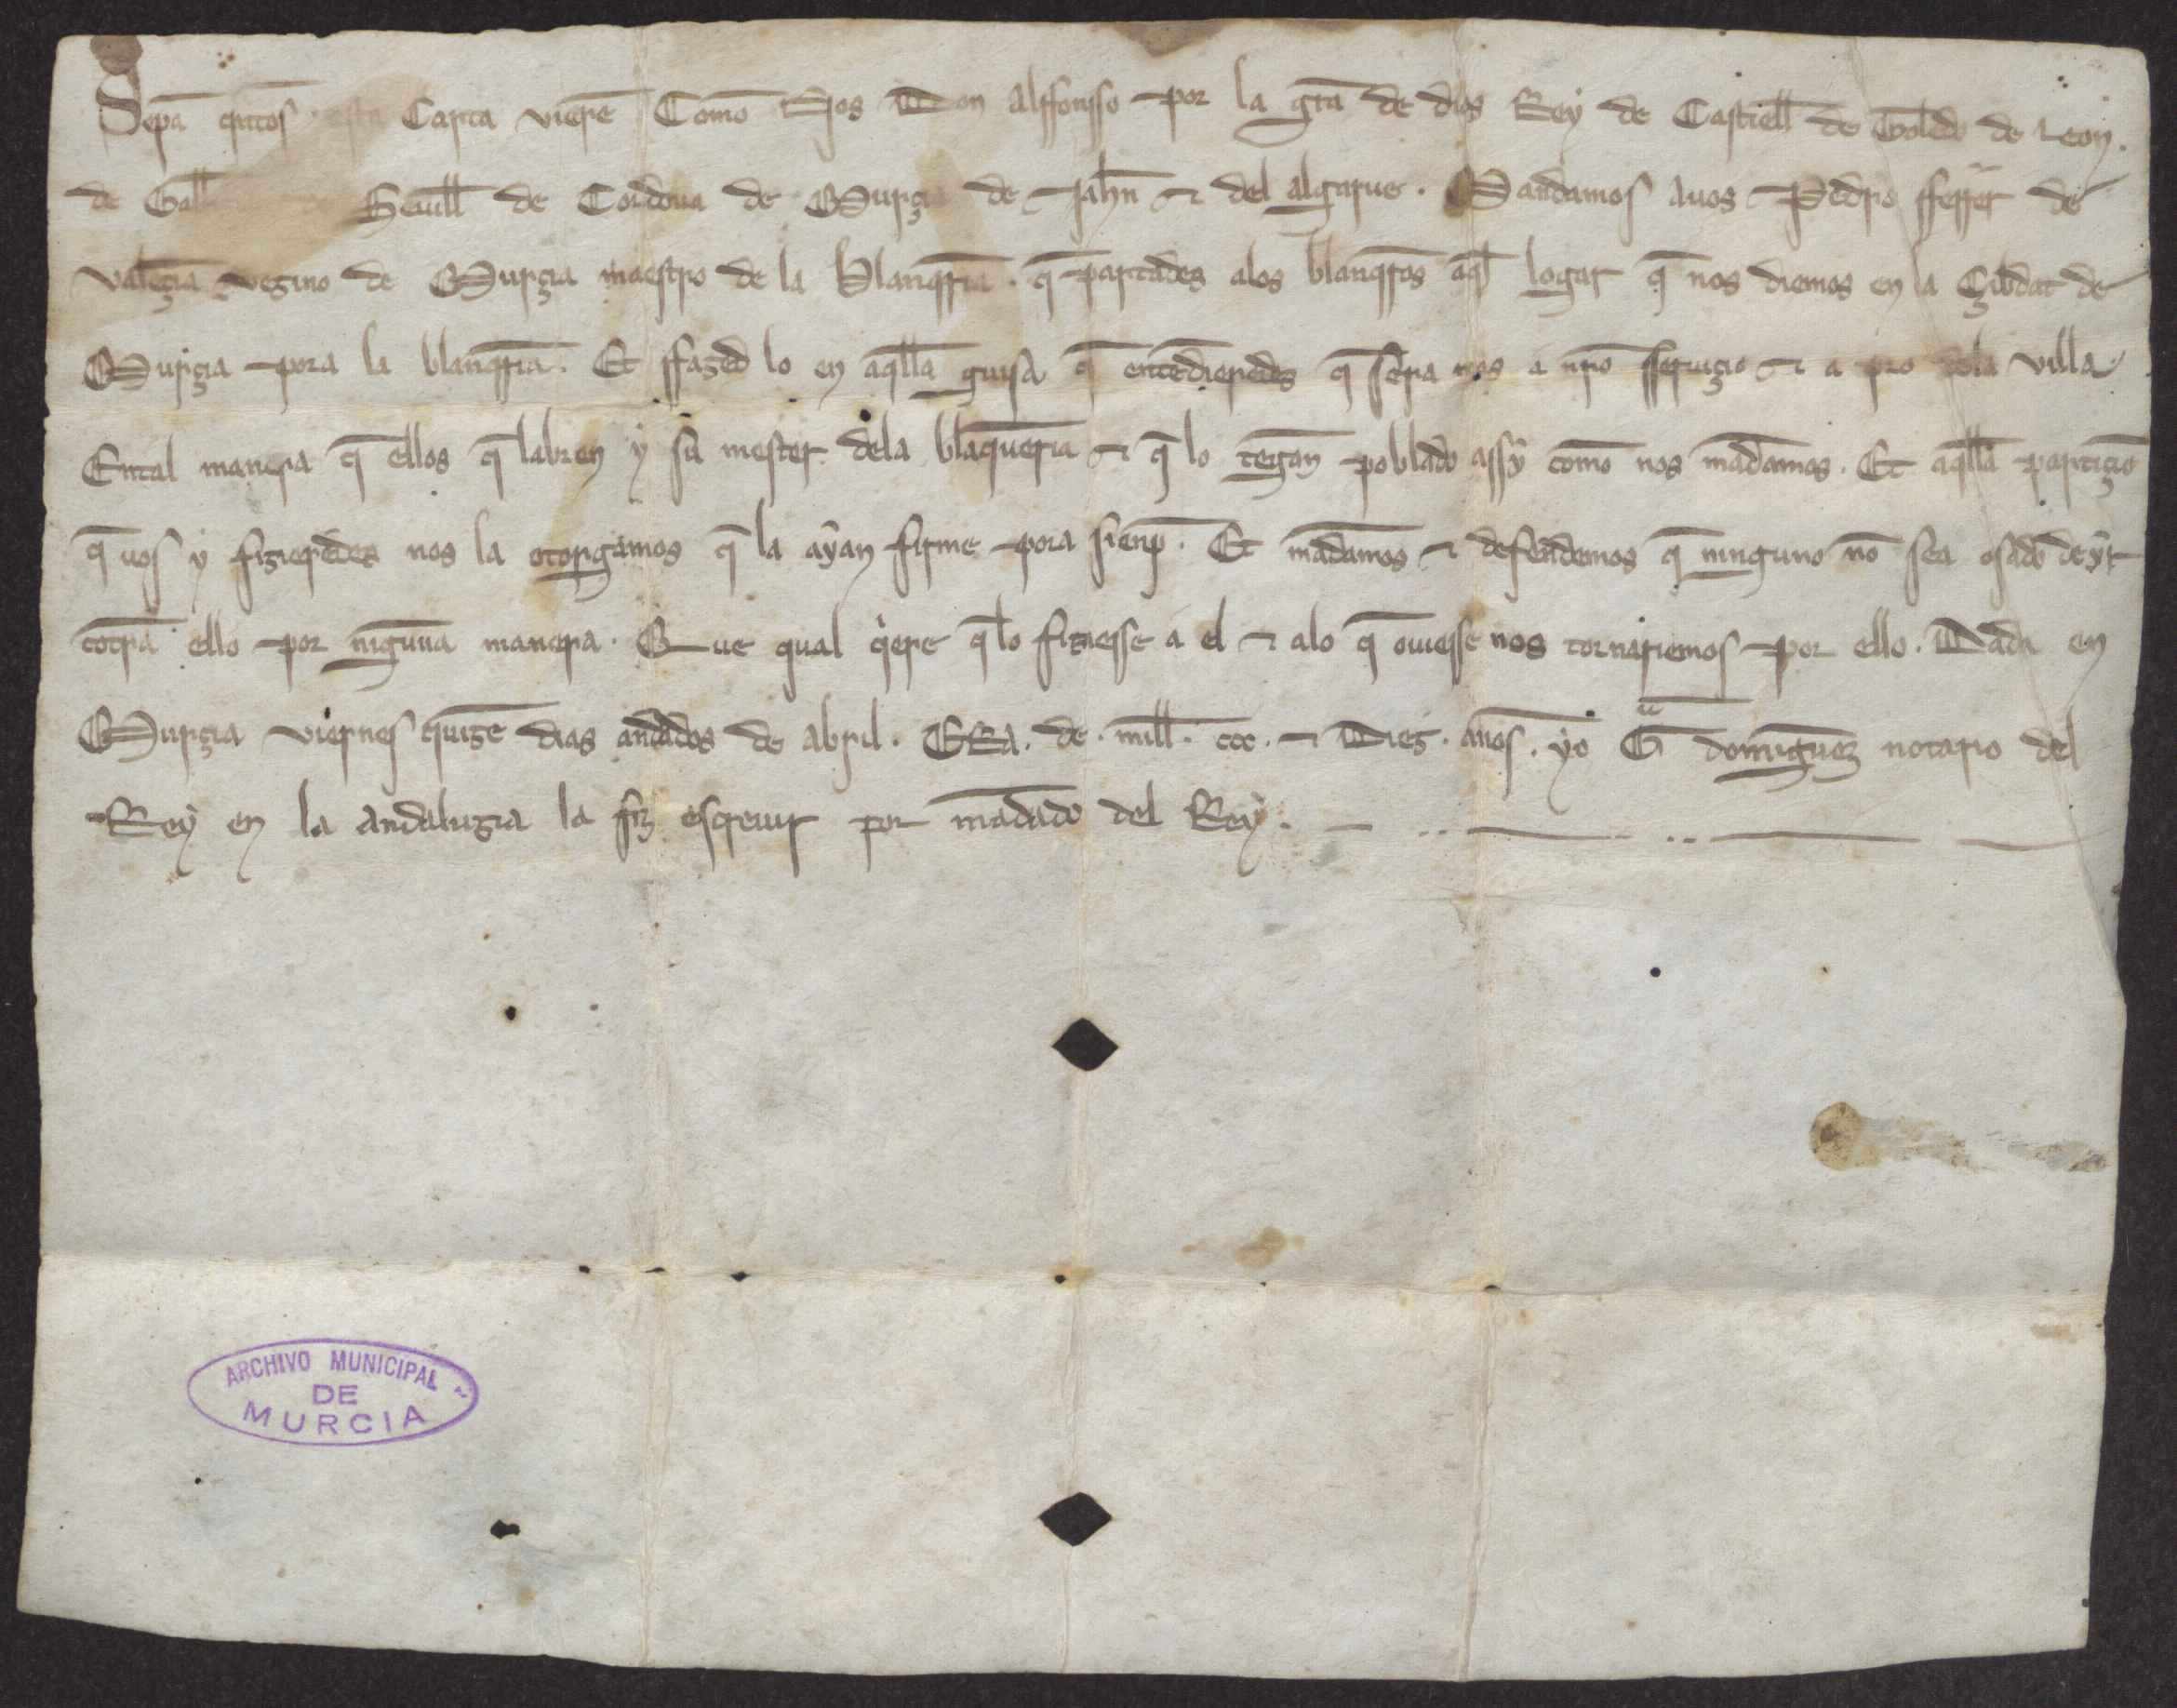 Sepã qntos esta Carta vierẽ Como Nos Don Alffonsso por la gr̃a de dios Rey de Castiell̃ de Toledo de Leon.
de Gall Seuill̃ de Cordoua de Murçia de Jahn̄ ⁊ del algarue. Mandamos auos Pedro fferrer de
valẽçia vezino de Murçia maestro de la blanq̃ria. q̃ partades alos blanq̃ros aq̃l logar q̃ nos diemos en la Çibdat de
Murçia pora la blanq̃ria. Et ffazed lo en aq̃lla guisa q̃ entẽdieredes q̃ sera mas a nr̃o sseruiçio ⁊ a pro dela villa.
Ental manera q̃ ellos q̃ labren y su mester dela blãqueria ⁊ q̃ lo tẽgan poblado assy como nos mãdamos. Et aq̃lla partiçiõ
q̃ uos y fizieredes nos la otorgamos q̃ la ayan firme pora sienp̃. Et mãdamos ⁊ defendemos q̃ ninguno nõ sea osado deyr
cõtra ello por nĩguna manera. Que qual q̃ere q̃ lo fiziesse a el ⁊ alo q̃ ouiesse nos tornariemos por ello. Dada en
Murçia viernes quize dias andados de abril. ERa. de. mill. ccc. ⁊ Diez. anos. yo G̃ domĩguez notario del
Rey en la andaluzia la fiz escreuir por mãdado del Rey.
ARCHIVO MUNICIPAL
DE
MURCIA